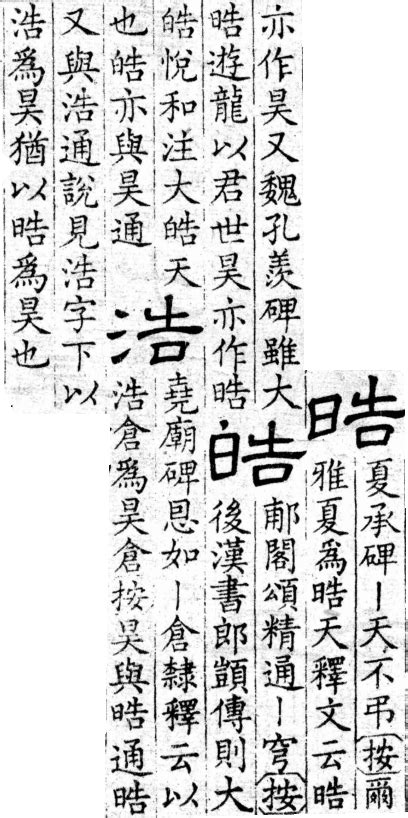 晧
夏承碑｜天不弔按爾
雅夏爲晧天釋文云晧
亦作昊又魏孔羨碑雖大
晧遊龍以君世昊亦作晧
皓
郙閣頌精通｜穹按
後漢書郎顗傳則大
皓悅和注大皓天
也皓亦與昊通
浩
堯廟碑恩如｜倉隸釋云以
浩倉爲昊倉按昊與晧通晧
又與浩通說見浩字下以
浩爲昊猶以晧爲昊也